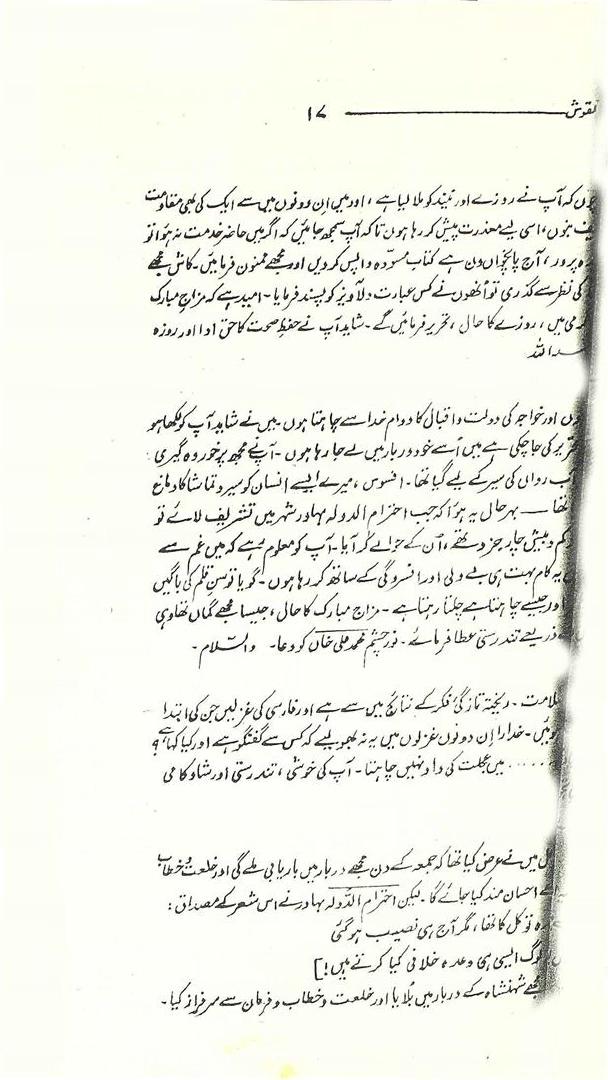 نقوش ۱۷
کہ آپ نے روزے اور نیند کو ملا لیا ہے، اور میں ان دونوں میں سے ایک کی بھی مقاومت
ہوں، اسی لیے معذرت پیش کر رہا ہوں تاکہ آپ سمجھ جائیں کہ اگر میں حاضرِ خدمت نہ ہوا تو
پرور، آج پانچواں دن ہے کتاب مسودہ واپس کر دیں اور مجھے ممنون فرمائیں۔ کاش مجھے
کی نظر سے گذری تو اُنھوں نے کس عبارت دلآویز کو پسند فرمایا۔ امید ہے کہ مزاجِ مبارک
میں، روزے کا حال، تحریر فرمائیں گے۔ شاید آپ نے حفظِ صحت کا حق ادا اور روزہ
اللہ
اور خواجہ کی دولت و اقبال کا دوام خدا سے چاہتا ہوں۔ میں نے شاید آپ کو لکھا ہو
کی جا چکی ہے میں اُسے خود دربار میں لے جا رہا ہوں۔ آپ نے مجھ پر خوردہ گیری
رواں کی سیر کے لیے گیا تھا۔ افسوس، میرے ایسے انسان کو سیر و تماشا کا دماغ
تھا — بہرحال یہ ہوا کہ جب احترام الدولہ بہادر شہر میں تشریف لائے تو
و بیش چار جزو تھے، اُن کے حوالے کر آیا۔ آپ کو معلوم رہے کہ میں غم سے
یہ کام بہت ہی بے دلی اور افسردگی کے ساتھ کر رہا ہوں۔ گویا توسنِ قلم کی باگیں
اور جیسے چاہتا ہے چلتا رہتا ہے۔ مزاج مبارک کا حال، جیسا مجھے گماں تھا وہی
ذریعے تندرستی عطا فرمائے۔ نورچشم محمد علی خاں کو دعا۔ والسّلام۔
سلامت۔ ریختہ تازگیٔ فکر کے نتائج میں سے ہے اور فارسی کی غزلیں جن کی ابتدا
خدارا اِن دونوں غزلوں میں یہ نہ بھولیے کہ کس سے گفتگو ہے اور کیا کہا ہے؟
..... میں عجلت کی داد نہیں چاہتا۔ آپ کی خوشی، تندرستی اور شادکامی
میں نے عرض کیا تھا کہ جمعہ کے دن مجھے دربار میں باریابی ملے گی اور خلعت و خطاب
احسان مند کیا جائے گا۔ لیکن احترام الدّولہ بہادر نے اس شعر کے مصداق:
تو کل کا تھا، مگر آج ہی نصیب ہو گئی
ایسی ہی وعدہ خلافی کیا کرتے ہیں!]
مجھے شہنشاہ کے دربار میں بُلایا اور خلعت و خطاب و فرمان سے سرفراز کیا۔